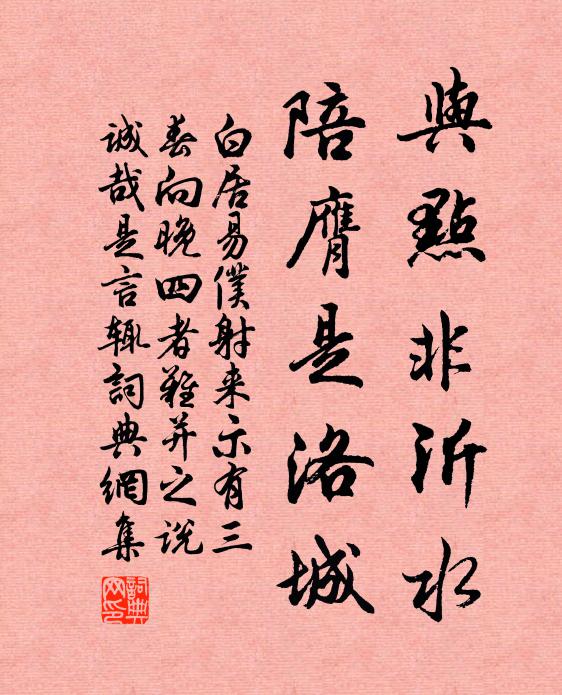 與點非沂水
陪膺是洛城
白居易僕射来示有三
春向晚四者難并之說
诚哉是言輒詞典網集
詞典
网印